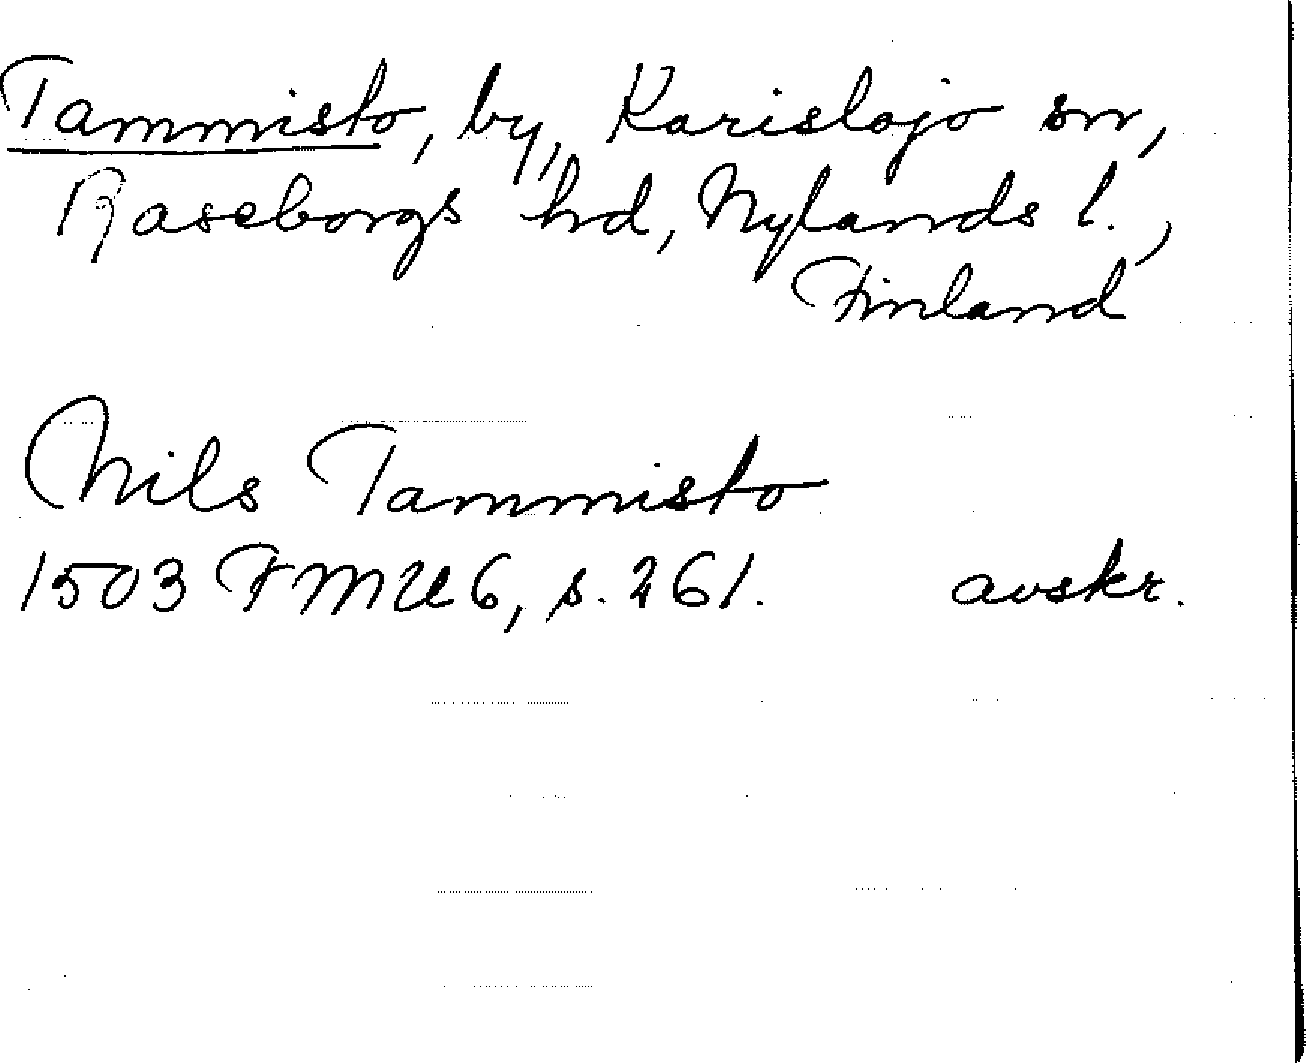 Tammisto, by, Karislojo sn,
Raseborgs hd, Nylands l.,
Finland
Nils Tammisto
1503 FMU 6, s. 261. avskr.